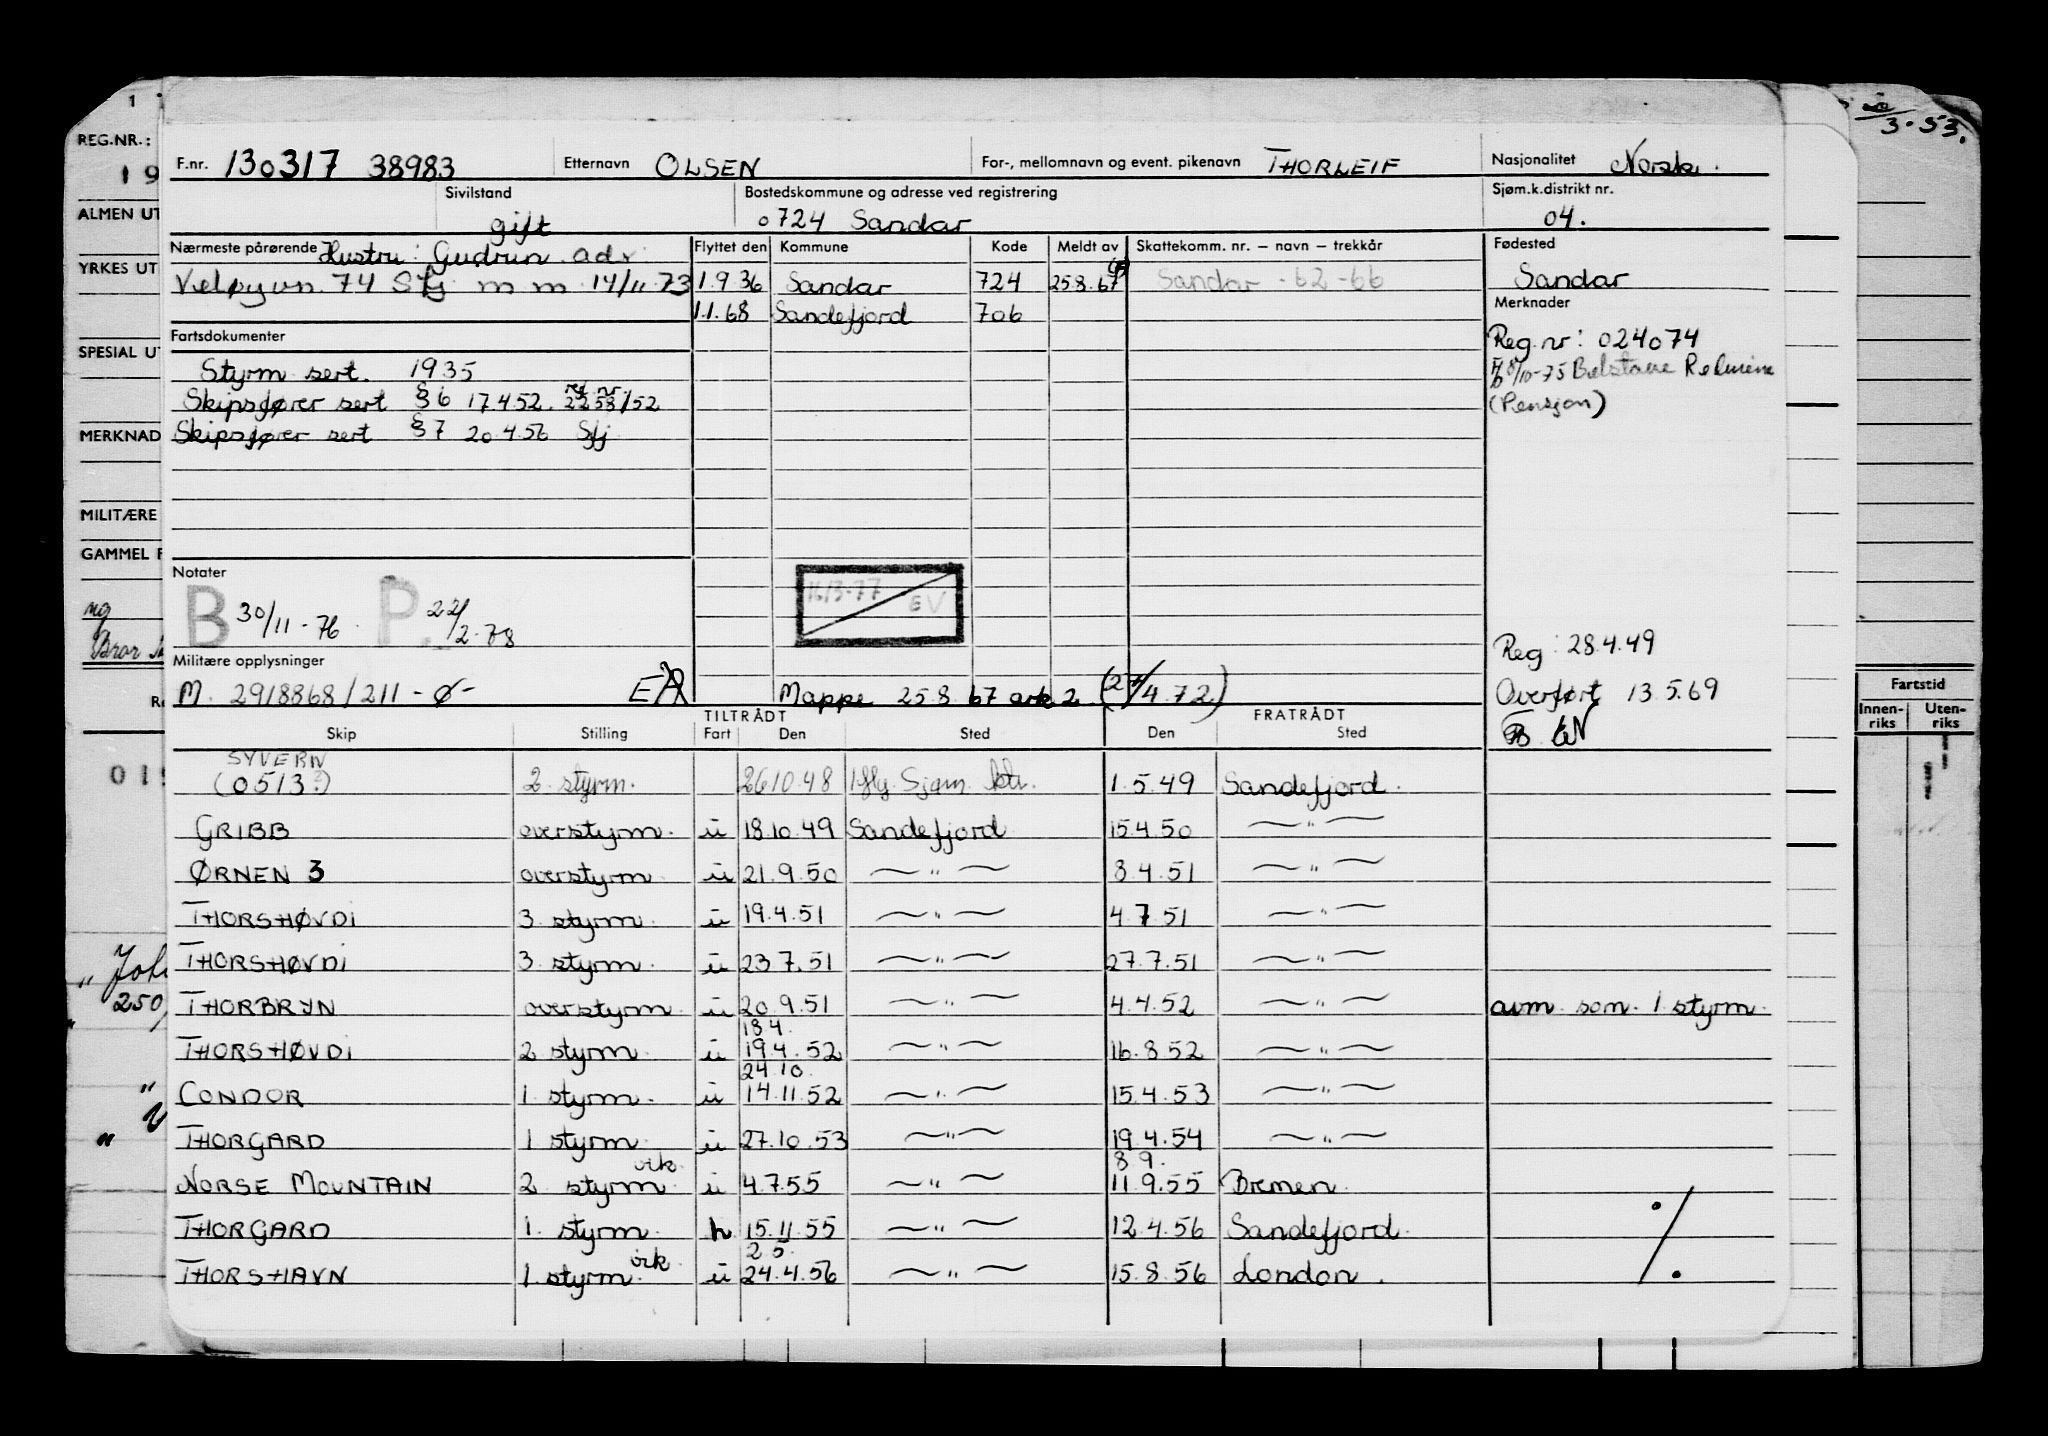 1
REG.NR.:
19
ALMEN UT
YRKES UT
SPESIAL UT
MERKNAD
MILITÆRE
GAMMEL F
ng
Bror
019
250
3.53.
F.nr. 130317 38983 Etternavn OLSEN For-, mellomnavn og event. pikenavn THORLEIF Nasjonalitet Norsk.
Sivilstand gift Bostedskommune og adresse ved registrering 0724 Sandar Sjøm.k.distrikt nr. 04.
Nærmeste pårørende Hustru: Gudrun adr. Flyttet den Kommune Kode Meldt av Skattekomm. nr. – navn – trekkår Fødested
74 Sfj m m 14/11 73 1.9 36 Sandar 724 25.8.67 Sandar - 62 -66 Sandar
1.1.68 Sandefjord 706 Merknader
Fartsdokumenter
Reg. nr: 024074
Styrm sert. 1935
/10-75
Skipsfører sert § 6 17.4.52. reg nr 2258/52
(Pensjon)
Skipsfører sert § 7 20.4.56 Sfj
Notater
B 30/11-76 P. 22/2-78
16/3-77 EV
Reg: 28.4.49
Militære opplysninger
M. 2918868/211 -ø- Mappe 25.8.67 ark 2 (27/4.72) Overført 13.5.69
TILTRÅDT FRATRÅDT
Skip Stilling Fart Den Sted Den Sted
SYVERN
(0513?) 2. styrm. 26.10.48 Sjøm. ktr. 1.5.49 Sandefjord.
GRIBB overstyrm. u 18.10.49 Sandefjord 15.4.50 — " —
ØRNEN 3 overstyrm. u 21.9.50 — " — 8.4.51 — " —
THORSHØVDI 3 styrm. u 19.4.51 — " — 4.7.51 — " —
THORSHØVDI 3 styrm. u 23.7.51 — " — 27.7.51 — " —
THORBRYN overstyrm. u 20.9.51 — " — 4.4.52 — " — avm. som. 1 styrm.
18 4.
THORSHØVDI 2 styrm. u 19.4.52 — " — 16.8.52 — " —
24.10.
CONDOR 1. styrm. u 14.11.52 — " — 15.4.53 — " —
THORGARD 1 styrm. u 27.10.53 — " — 19.4.54 — " —
vik. 8 9.
NORSE MOUNTAIN 2 styrm. u 4.7.55 — " — 11.9.55 Bremen.
THORGARD 1. styrm. h 15.11.55 — " — 12.4.56 Sandefjord.
vik. 2 5.
THORSHAVN 1 styrm. u 24.4.56 — " — 15.8.56 London.
./.
Fartstid
Innen-riks Uten-riks